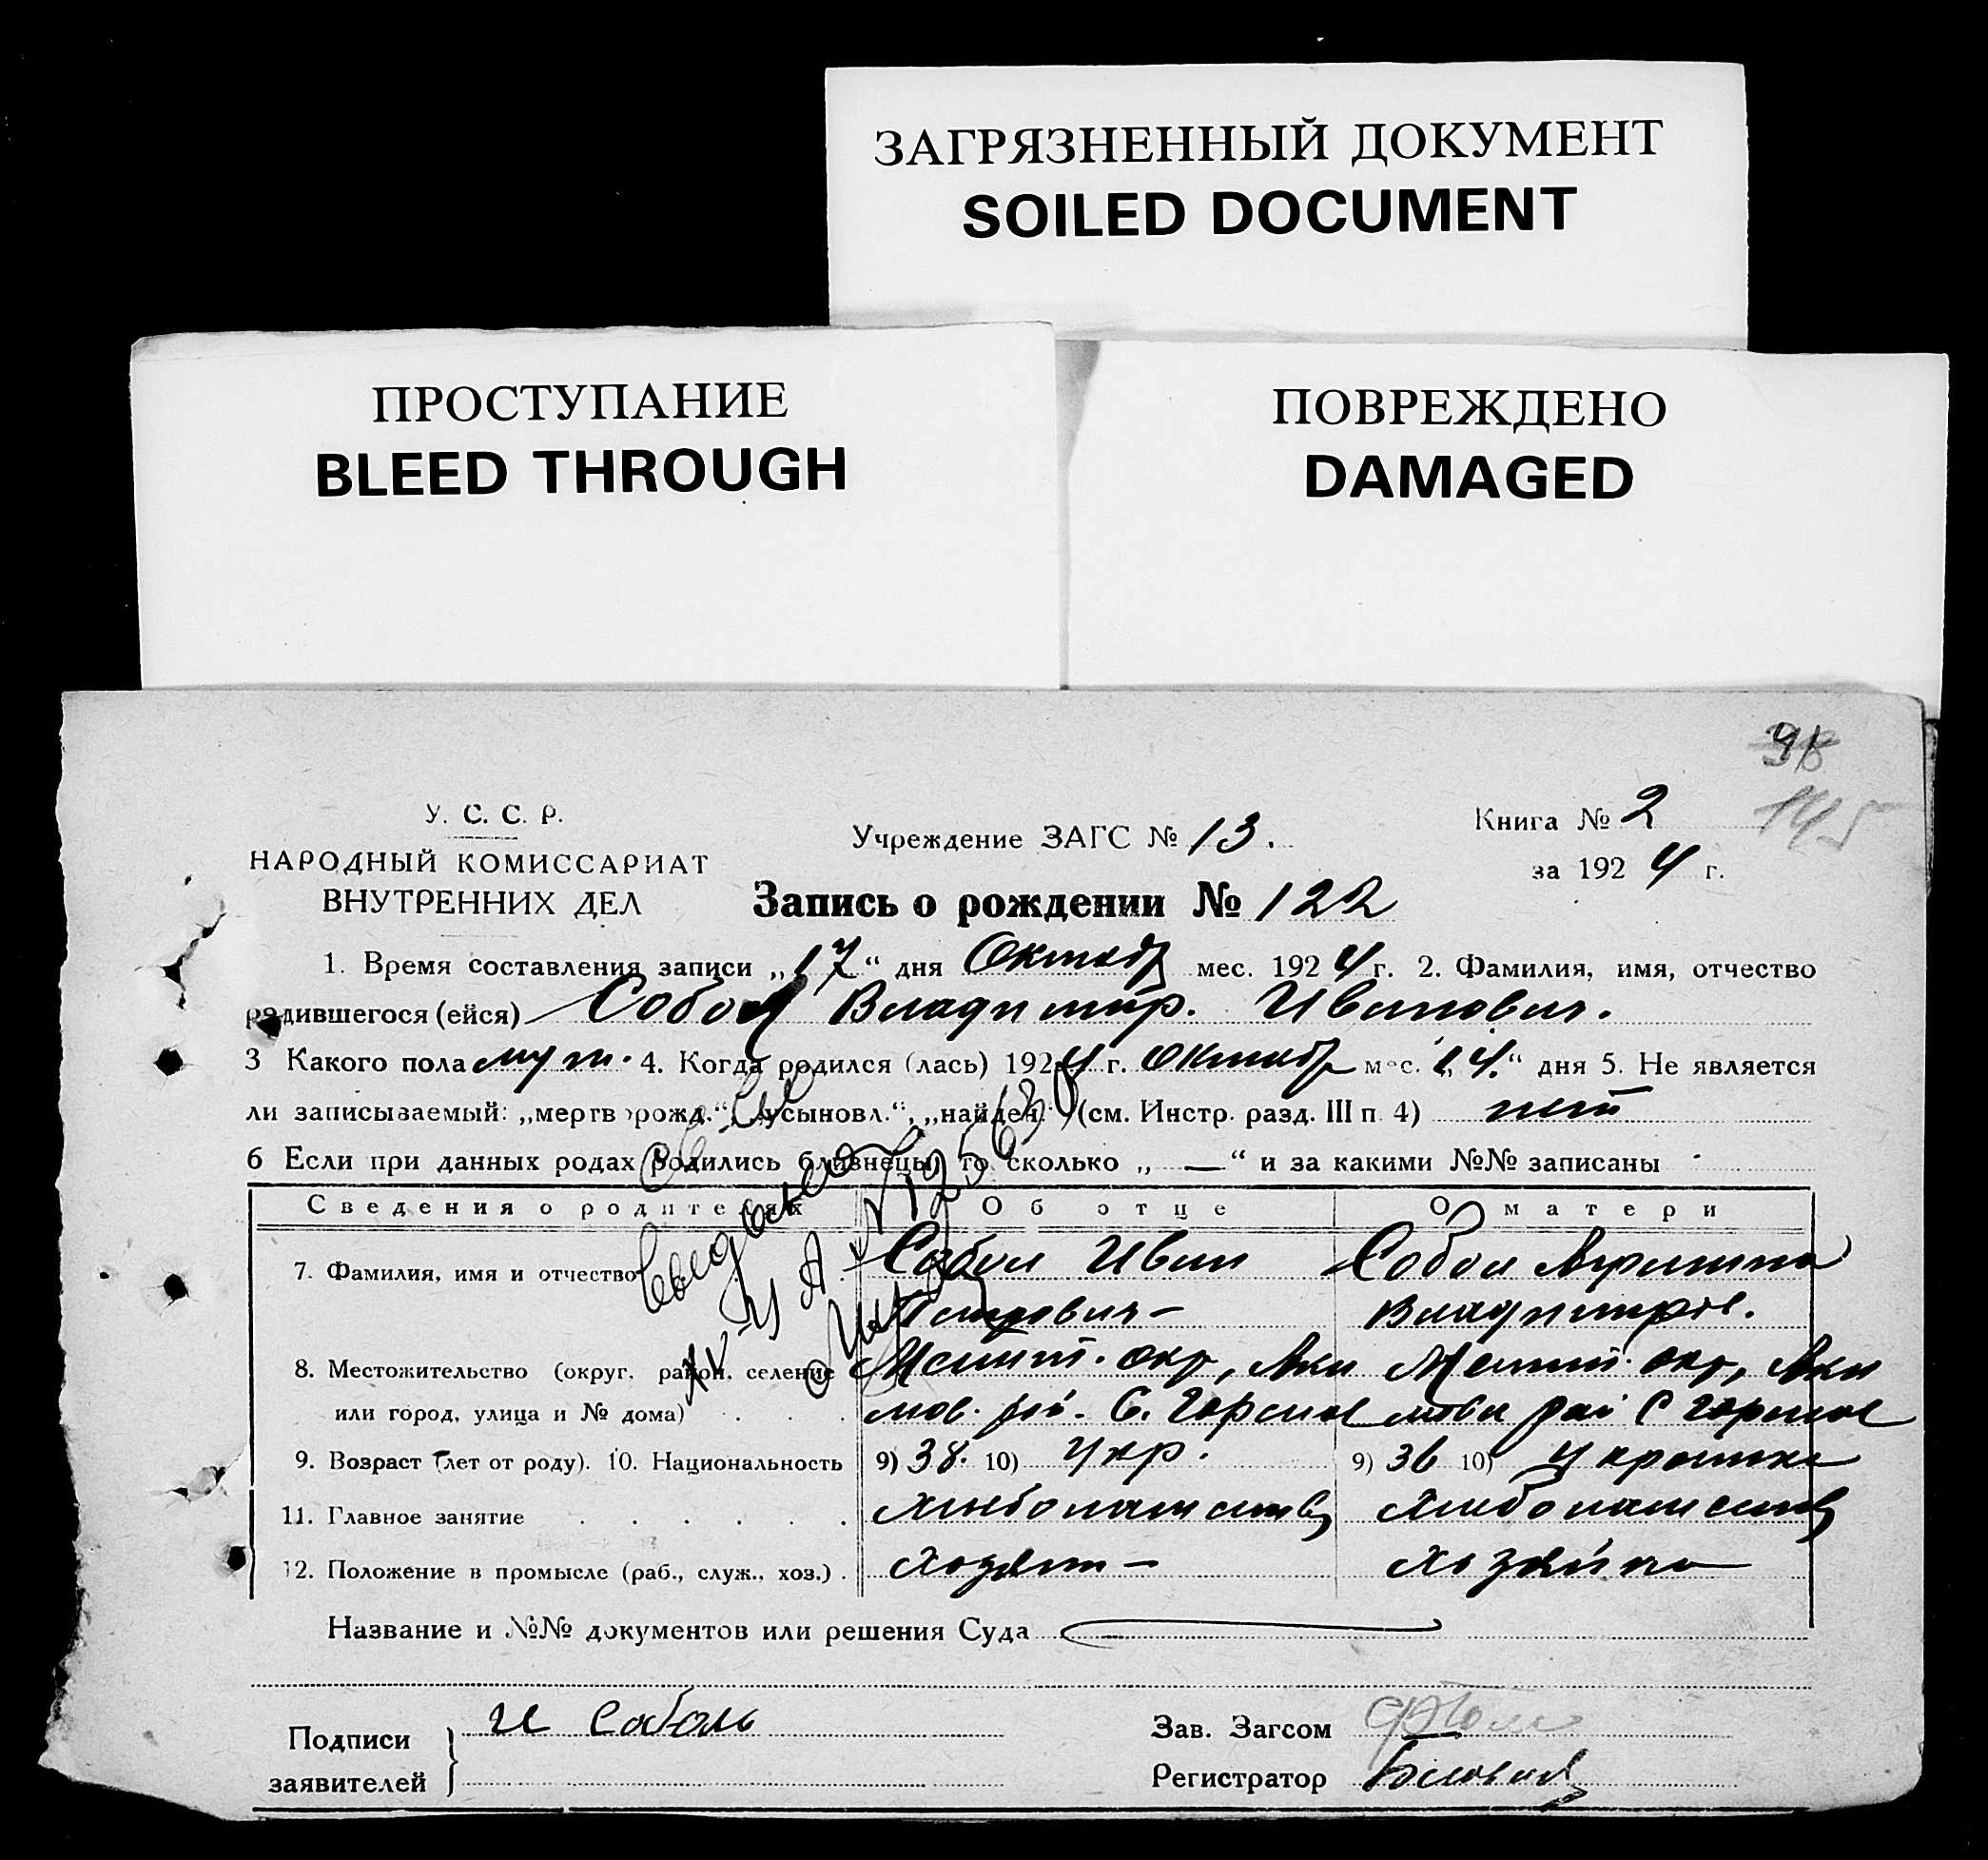 ЗАГРЯЗНЕННЫЙ ДОКУМЕНТ
SOILED DOCUMENT
ПРОСТУПАНИЕ
BLEED THROUGH
ПОВРЕЖДЕНО
DAMAGED
145
У. С. С. Р.
НАРОДНЫЙ КОМИССАРИАТ
ВНУТРЕННИХ ДЕЛ
Учреждение ЗАГС № 13.
Книга № 2
за 1924 г.
Запись о рождении № 122
1. Время составления записи „17“ дня Октябр мес. 1924 г. 2. Фамилия, имя, отчество
родившегося (ейся) Собол Владимир. Иванович.
3 Какого пола муж. 4. Когда родился (лась) 1924 г. Октябр мес. „14.“ дня 5. Не является
ли записываемый: „мертворожд.“, „усыновл.“, „найден.“ (см. Инстр. разд. III п. 4) нет
6 Если при данных родах родились близнецы, то сколько „ — “ и за какими №№ записаны
Сведения о родителях Об отце О матери
7. Фамилия, имя и отчество Собол Иван Собол
Петрович — Владимиров.
8. Местожительство (округ, район, селение Мелит. окр, Аки Мелит. окр, Аки
или город, улица и № дома) мов. рай. С. Горелое мовк рай С Горелое
9. Возраст (лет от роду). 10. Национальность 9) 38. 10) Укр. 9) 36 10) Украинка
11. Главное занятие хлебопашество хлебопашество
12. Положение в промысле (раб., служ., хоз.) хозяин — хозяйка
Название и №№ документов или решения Суда
Подписи И Соболь Зав. Загсом
заявителей Регистратор